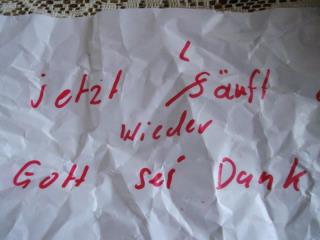 L
jetzt säuft
wieder
Gott sei Dank